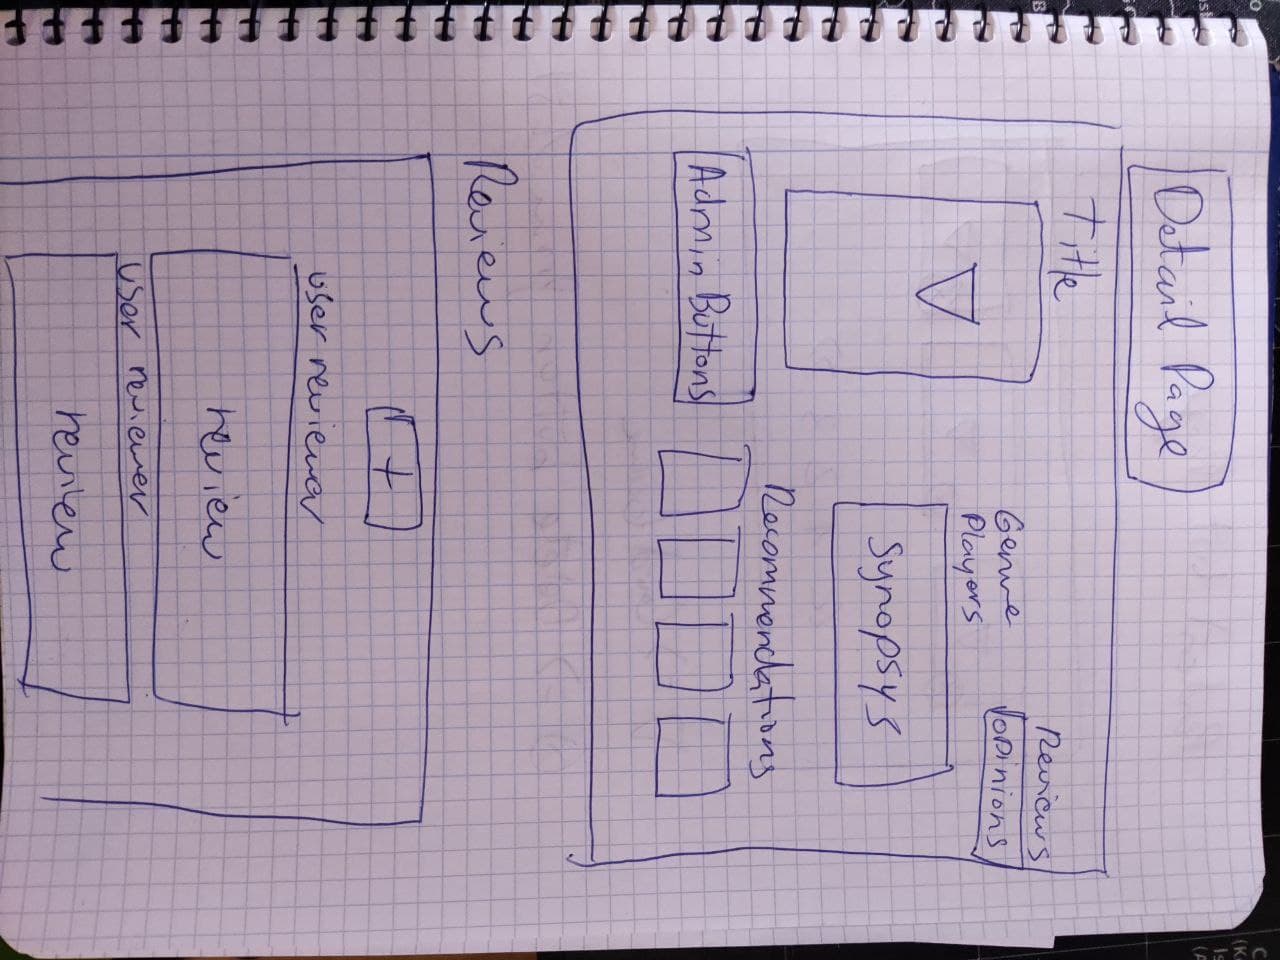 Detail Page
Title
Genre
Players
Reviews
opinions
Synopsys
Admin Buttons
Recommendations
Reviews
+
user reviewer
review
user reviewer
review